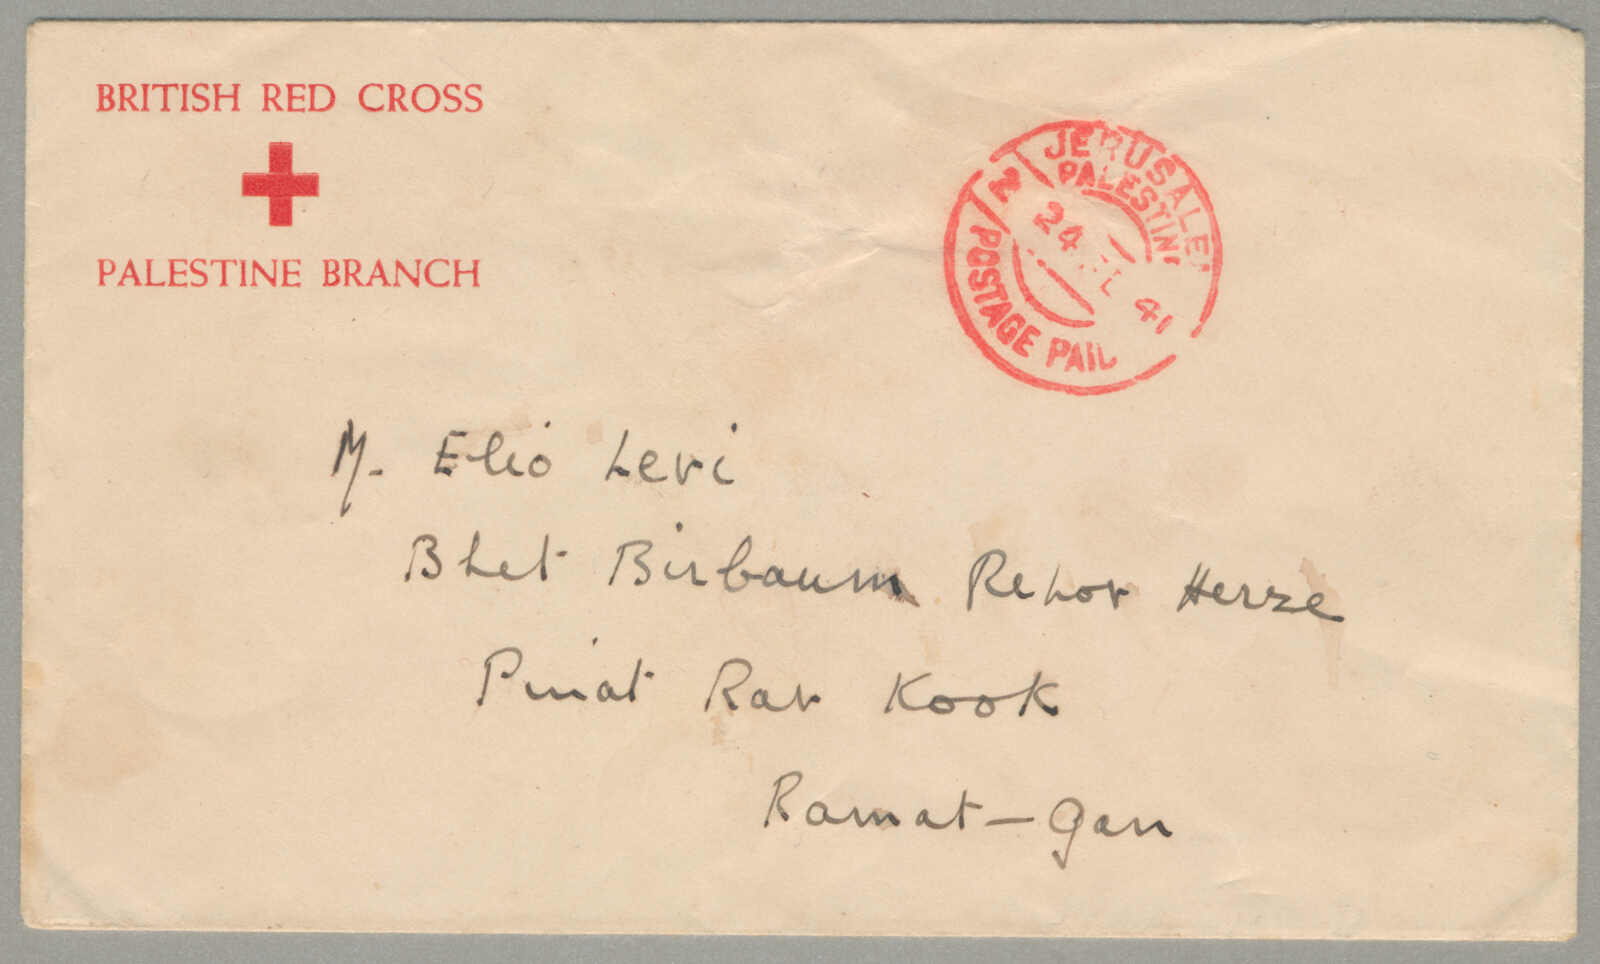 BRITISH RED CROSS
PALESTINE BRANCH
JERUSALEM
PALESTINE
2
24 41
POSTAGE PAID
M. Elio Levi
Bhet Birbaum Rehov Herze
Pinat Rav Kook
Ramat-Gan